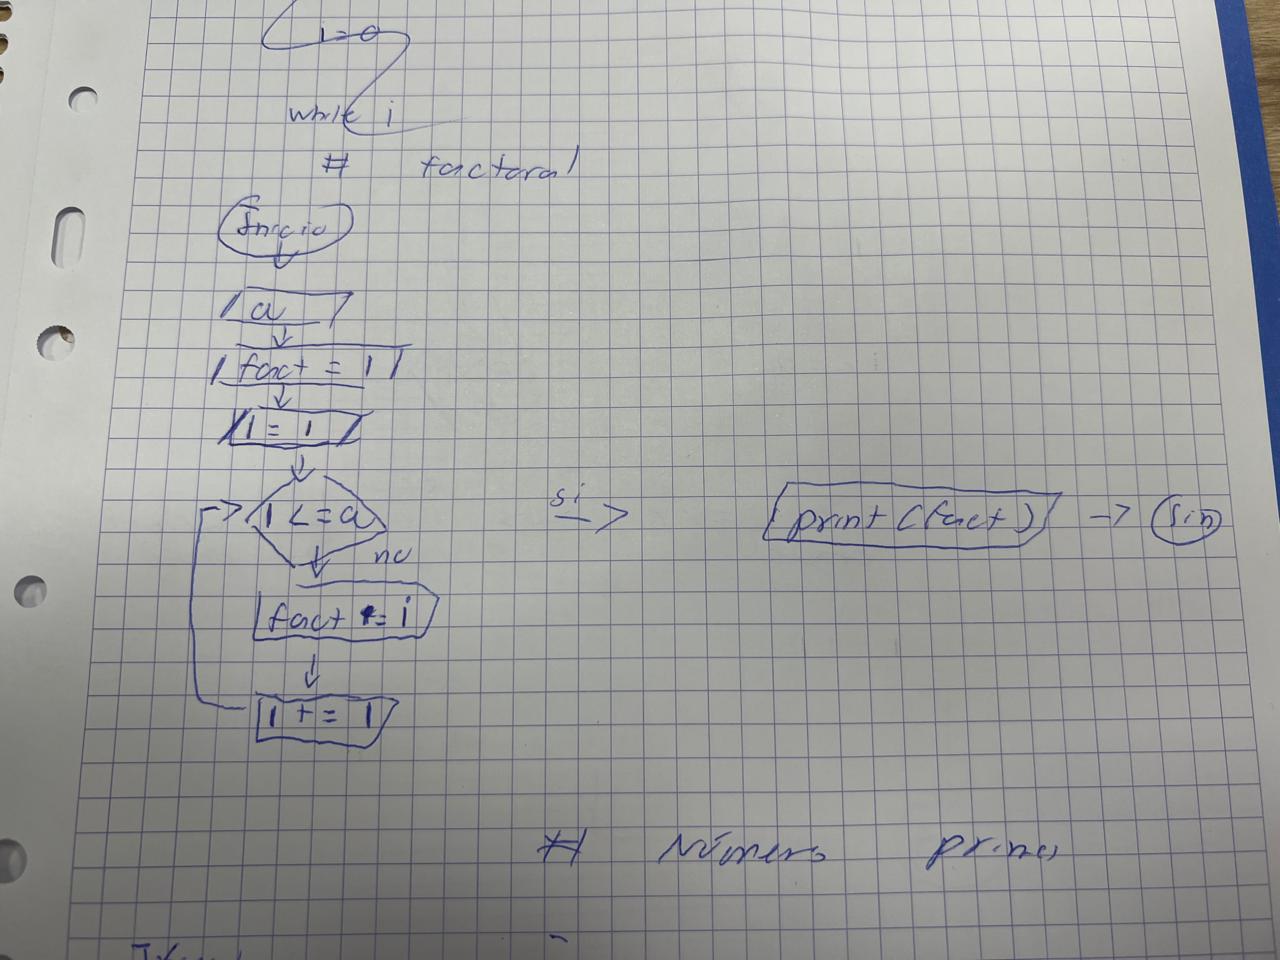 i = 0
while i
# factoral
Inicio
a
fact = 1
i = 1
i <= a
si
print (fact)
fin
no
fact *= i
i += 1
# Número primo